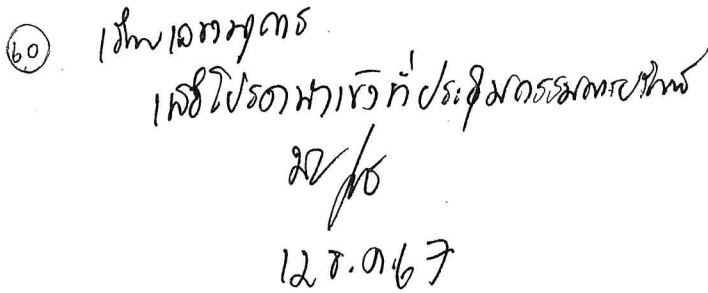 60 เรียน เลขานุการ
เพื่อโปรดนำเข้าที่ประชุมกรรมการบริหาร
12 ธ.ค. 67